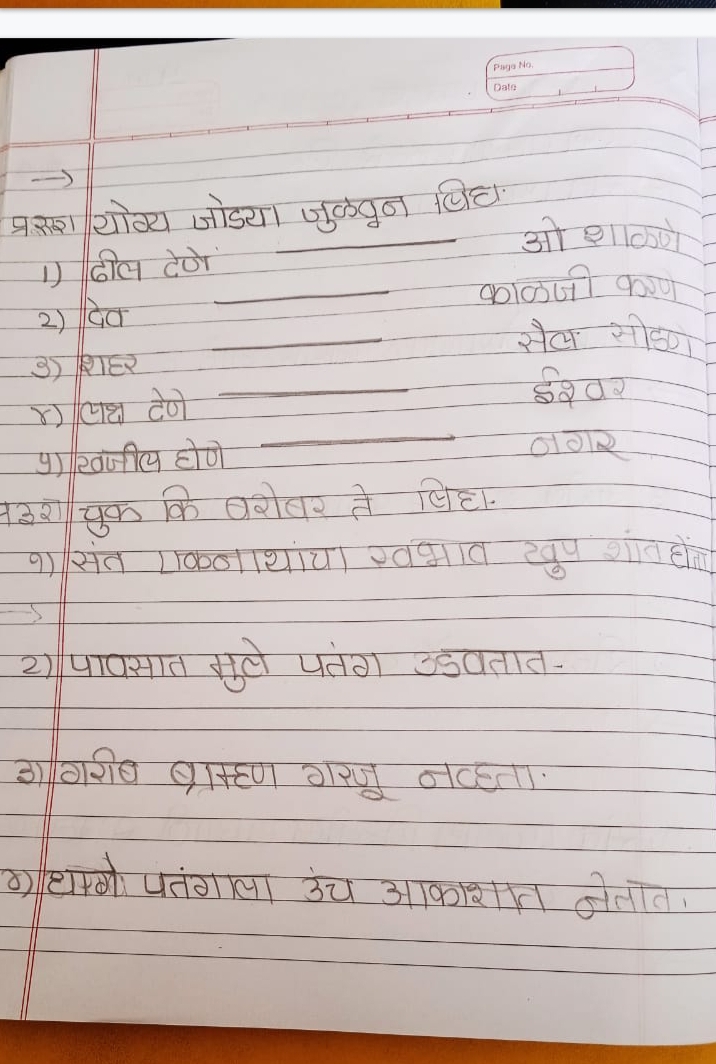 Page No.
Date
→
प्रश्न२रा योग्य जोड्या जुळवून लिहा.
१) ढील देणे ओशाळणे
२) देव काळजी करणे
३) शहर सैल सोडणे
४) लक्ष देणे ईश्वर
५) खजील होणे नगर
प्र३रा चुक कि बरोबर ते लिहा.
१) संत एकनाथांचा स्वभाव खुप शांत होता
→
२) पावसात मुले पतंग उडवतात.
३) गरीब ब्राम्हण गरजू नव्हता.
४) धागे पतंगाला उंच आकाशात नेतात.